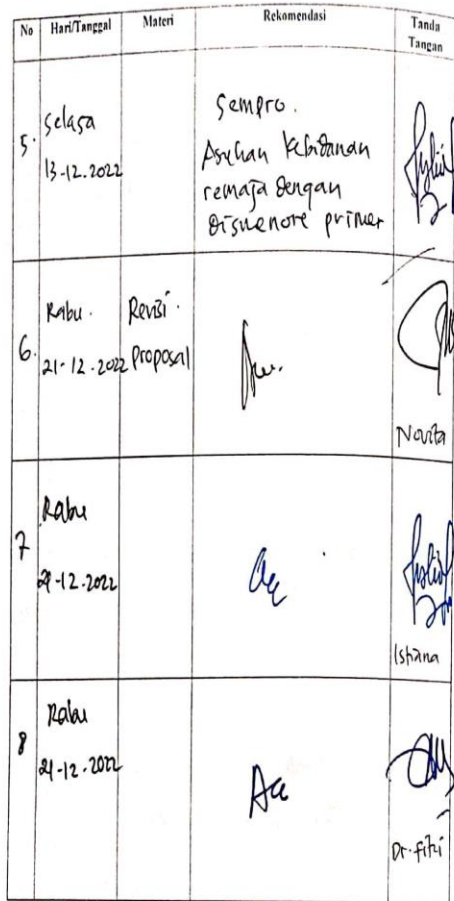 No Hari/Tanggal Materi Rekomendasi Tanda Tangan
5. Selasa
13-12.2022
Sempro.
Asuhan Kebidanan
remaja dengan
dismenore primer
6. Rabu.
21-12.2022
Revisi
Proposal
Novita
7 Rabu
21-12.2022
acc
Istiana
8 Rabu
21-12-2022
Acc
Dr. fitri